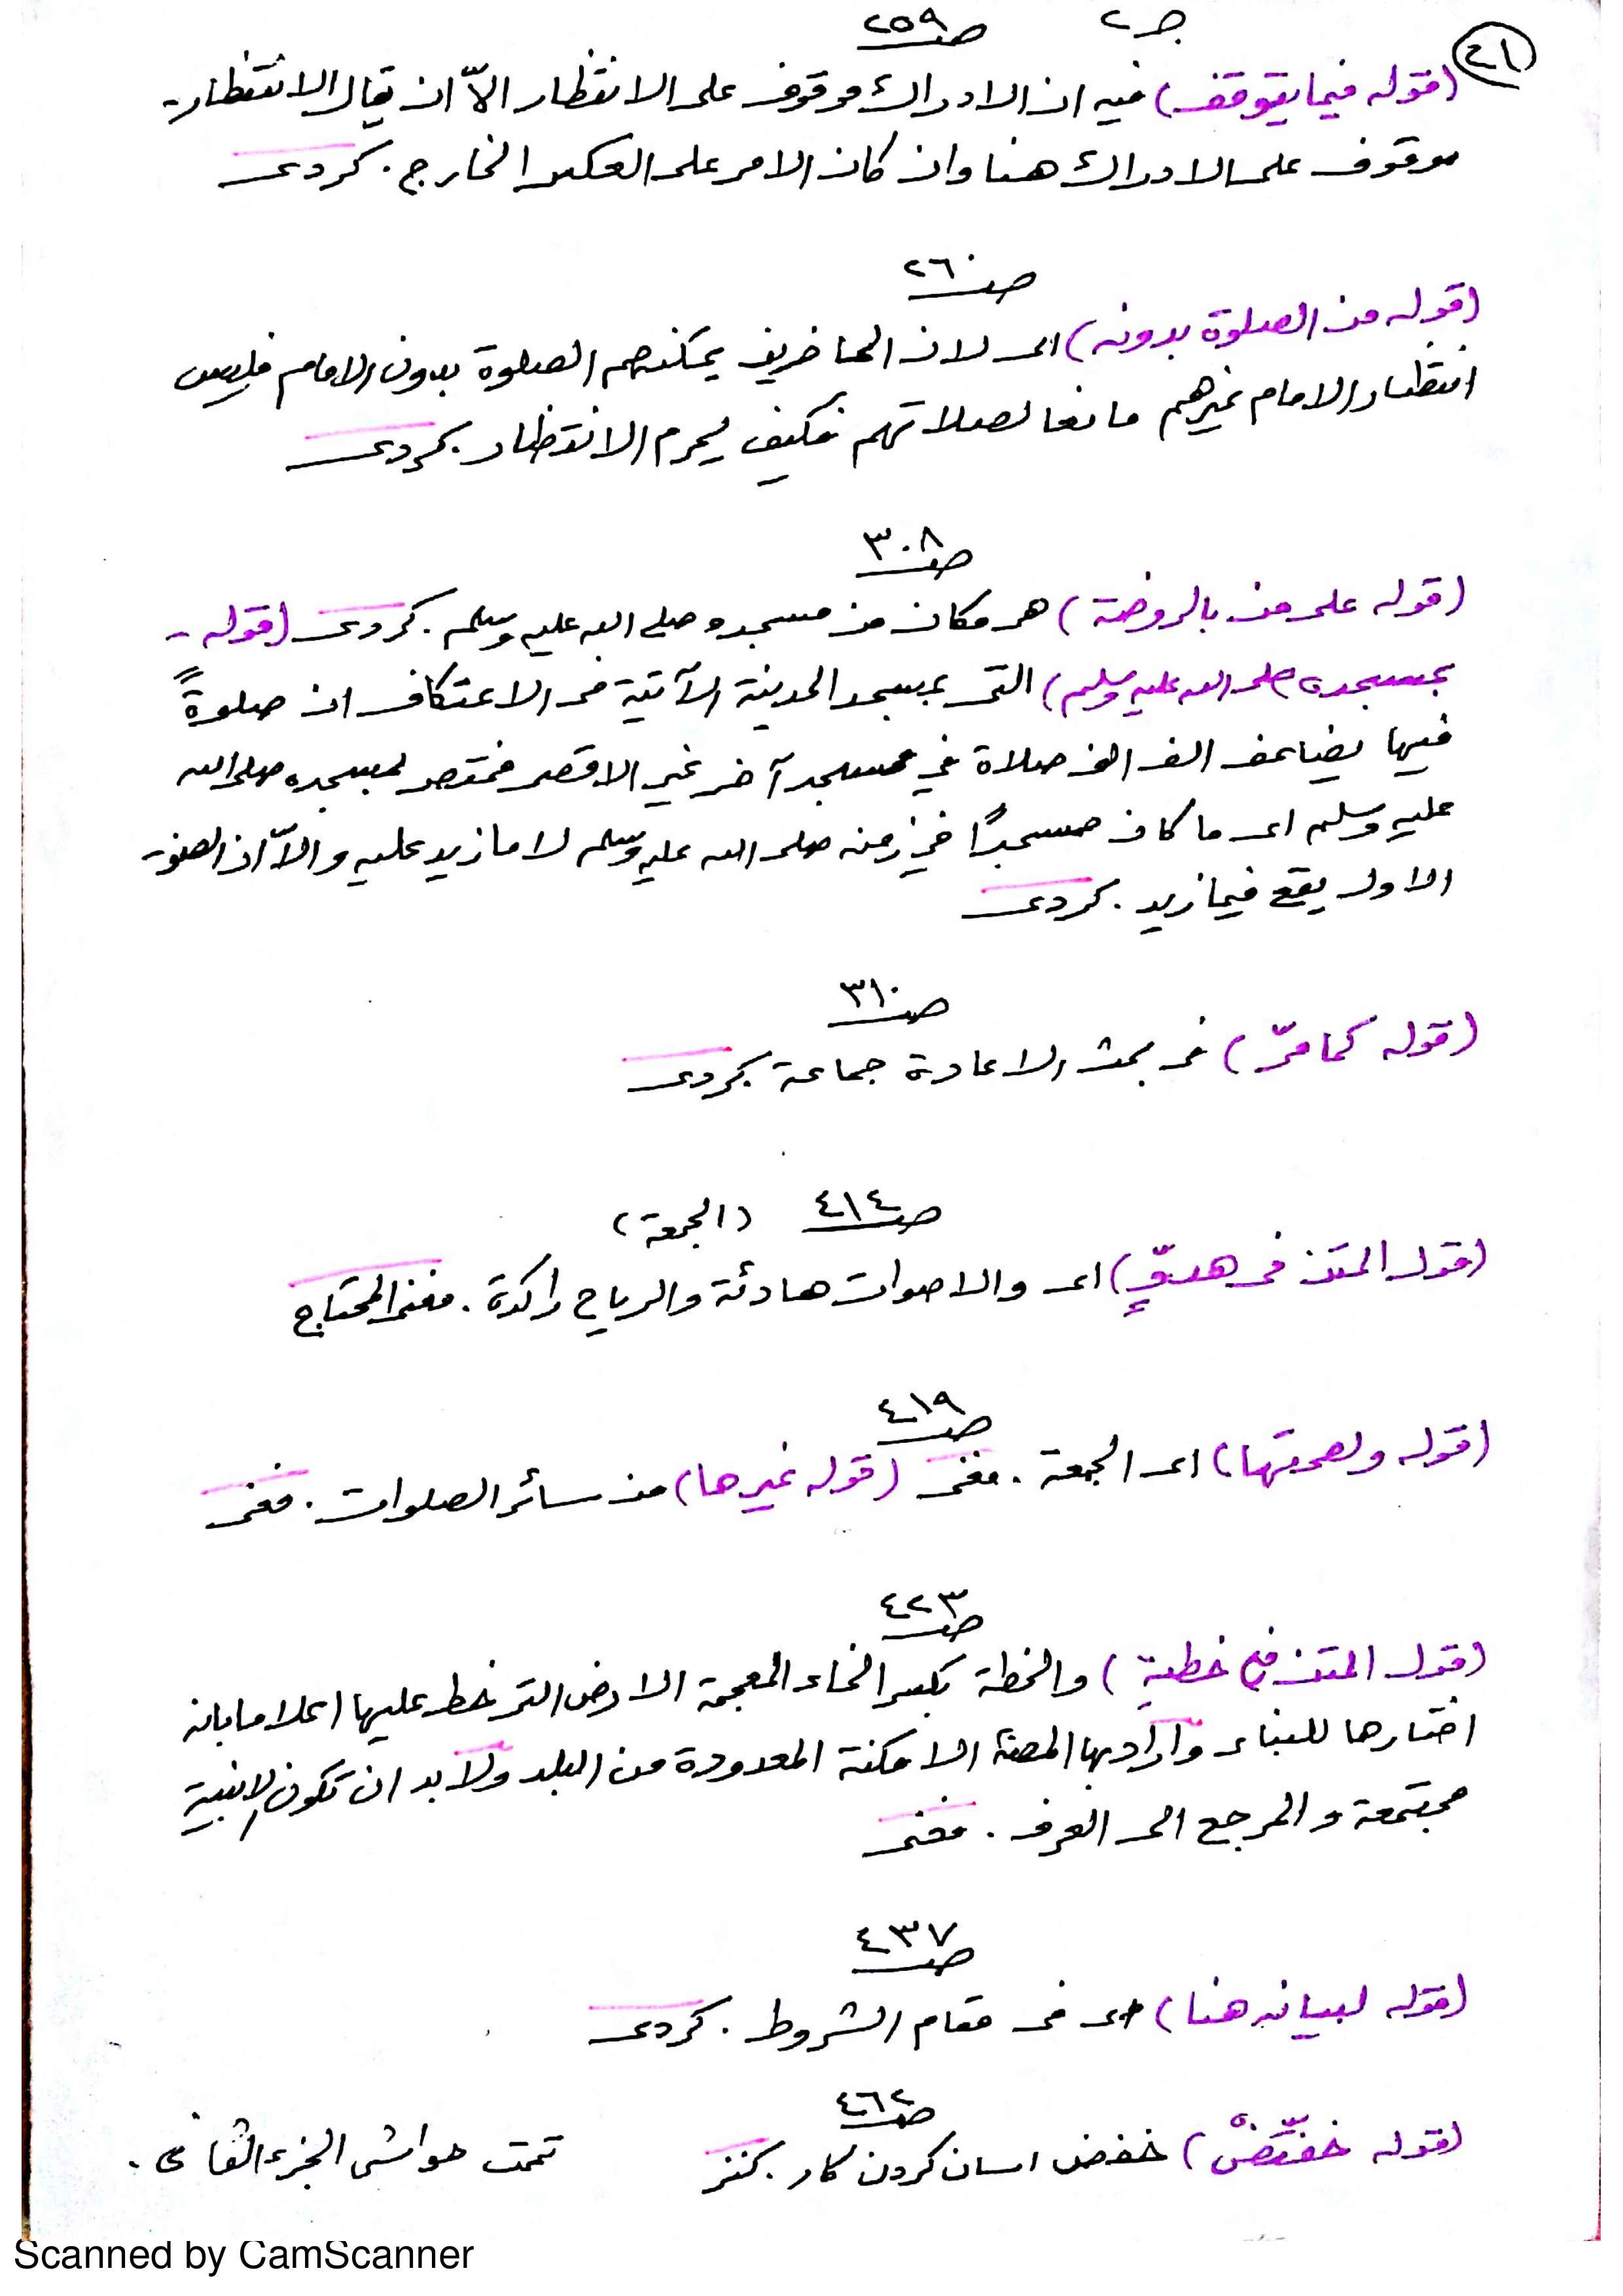 ٤١
ج ٢
صـ ٢٥٩
(قوله فيما يتوقف) فيه ان الادراك موقوف على الانتظار الاّ ان يقال الانتظار
موقوف على الادراك هنا وان كان الامر على العكس الخارج . كردى
صـ ٢٦٠
(قوله من الصلوة بدونه) اى لان الحاضرين يمكنهم الصلوة بدون الامام فليس
انتظار الامام غيرهم مانعا لصلاتهم فكيف يحرم الانتظار . كردى
صـ ٣٠٨
(قوله على من بالروضة) هى مكان من مسجده صلى الله عليه وسلم . كردى (قوله -
بمسجده صلى الله عليه وسلم) التى بمسجد المدينة الآتية فى الاعتكاف ان صلوةً
فيها يضاعف الف الف صلاة في مسجد آخر غير الاقصى فمختص لمسجده صلى الله
عليه وسلم اى ما كان مسجدًا في زمنه صلى الله عليه وسلم لا ما زيد عليه والاّ ان الصف
الاول يقع فيما زيد . كردى
صـ ٣١٠
(قوله كما مرّ) فى بحث الاعادة جماعة . كردى
صـ ٤١٤ (الجمعة)
(قول المتن فى هدوّ) اى والاصوات هادئة والرياح راكدة . مغنى المحتاج
صـ ٤١٩
(قوله ولصحتها) اى الجمعة . مغنى (قوله غيرها) من سائر الصلوات . مغنى
صـ ٤٢٣
(قول المتن في خطبة) والخطة بكسر الخاء المعجمة الارض التى خط عليها اعلاما بانه
اختارها للبناء واراد بها المصنف الامكنة المعدودة من البلد ولا بد ان تكون الابنية
مجتمعة والمرجع الى العرف . مغنى
صـ ٤٣٧
(قوله لبيانه هنا) اى فى مقام الشروط . كردى
صـ ٤٦٢
(قوله خفّضْ) خفض اسان كردن كار . كنز
تمت حواشى الجزء الثانى .
Scanned by CamScanner